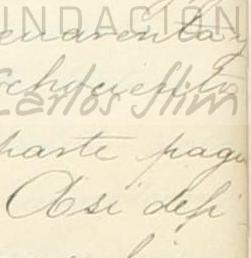 FUNDACIÓN
cuarenta
ochocientos
Carlos Slim
parte pagu
Así defi